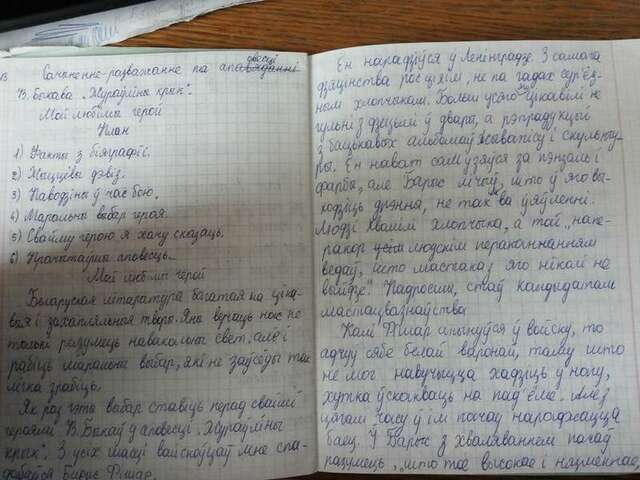 Сачыненне-разважанне па аповесці
В. Быкава „Жураўліны крык".
Мой любімы герой
План
1) Факты з біяграфіі.
2) Жыццёвы дэвіз.
3) Паводзіны ў час бою.
4) Маральны выбар героя.
5) Свайму герою я хачу сказаць.
6) Прачытаўшы аповесць...
Мой любімы герой
Беларуская літаратура багатая на ціка-
выя і захапляльныя творы. Яны вучаць нас не
толькі разумець навакольны свет, але і
рабіць маральны выбар, які не заўсёды так
лёгка зрабіць.
Як раз гэты выбар ставіць перад сваімі
героямі В. Быкаў у аповесці „Жураўліны
крык". З усіх шасці вайскоўцаў мне спа-
дабаўся Барыс Фішар.
Ён нарадзіўся у Ленінградзе. З самага
дзяцінства рос ціхім, не па гадах сур'ёз-
ным хлопчыкам. Больш усяго яго цікавілі не
гульні з дзецьмі ў двары, а рэпрадукцыі
з бацькавых альбомаў жывапісу і скульпту-
ры. Ён нават сам узяўся за пэндзаль і
фарбы, але Барыс лічыў, што ў яго вы-
ходзіць дрэнна, не так як ва ўяўленні.
Людзі хвалілі хлопчыка, а той „напе-
ракор усім людскім перакананням
ведаў, што мастака з яго ніколі не
выйдзе". Падросшы, стаў кандыдатам
мастацвазнаўства
Калі Фішар апынуўся ў войску, то
адчуў сябе белай варонай, таму што
не мог навучыцца хадзіць ў нагу,
хутка ўскокваць на пад'ёме. Але з
цягам часу ў ім пачаў нараджацца
баец. У Барыс з хваляваннем пачаў
разумець, „што тое высокае і нязменнае,